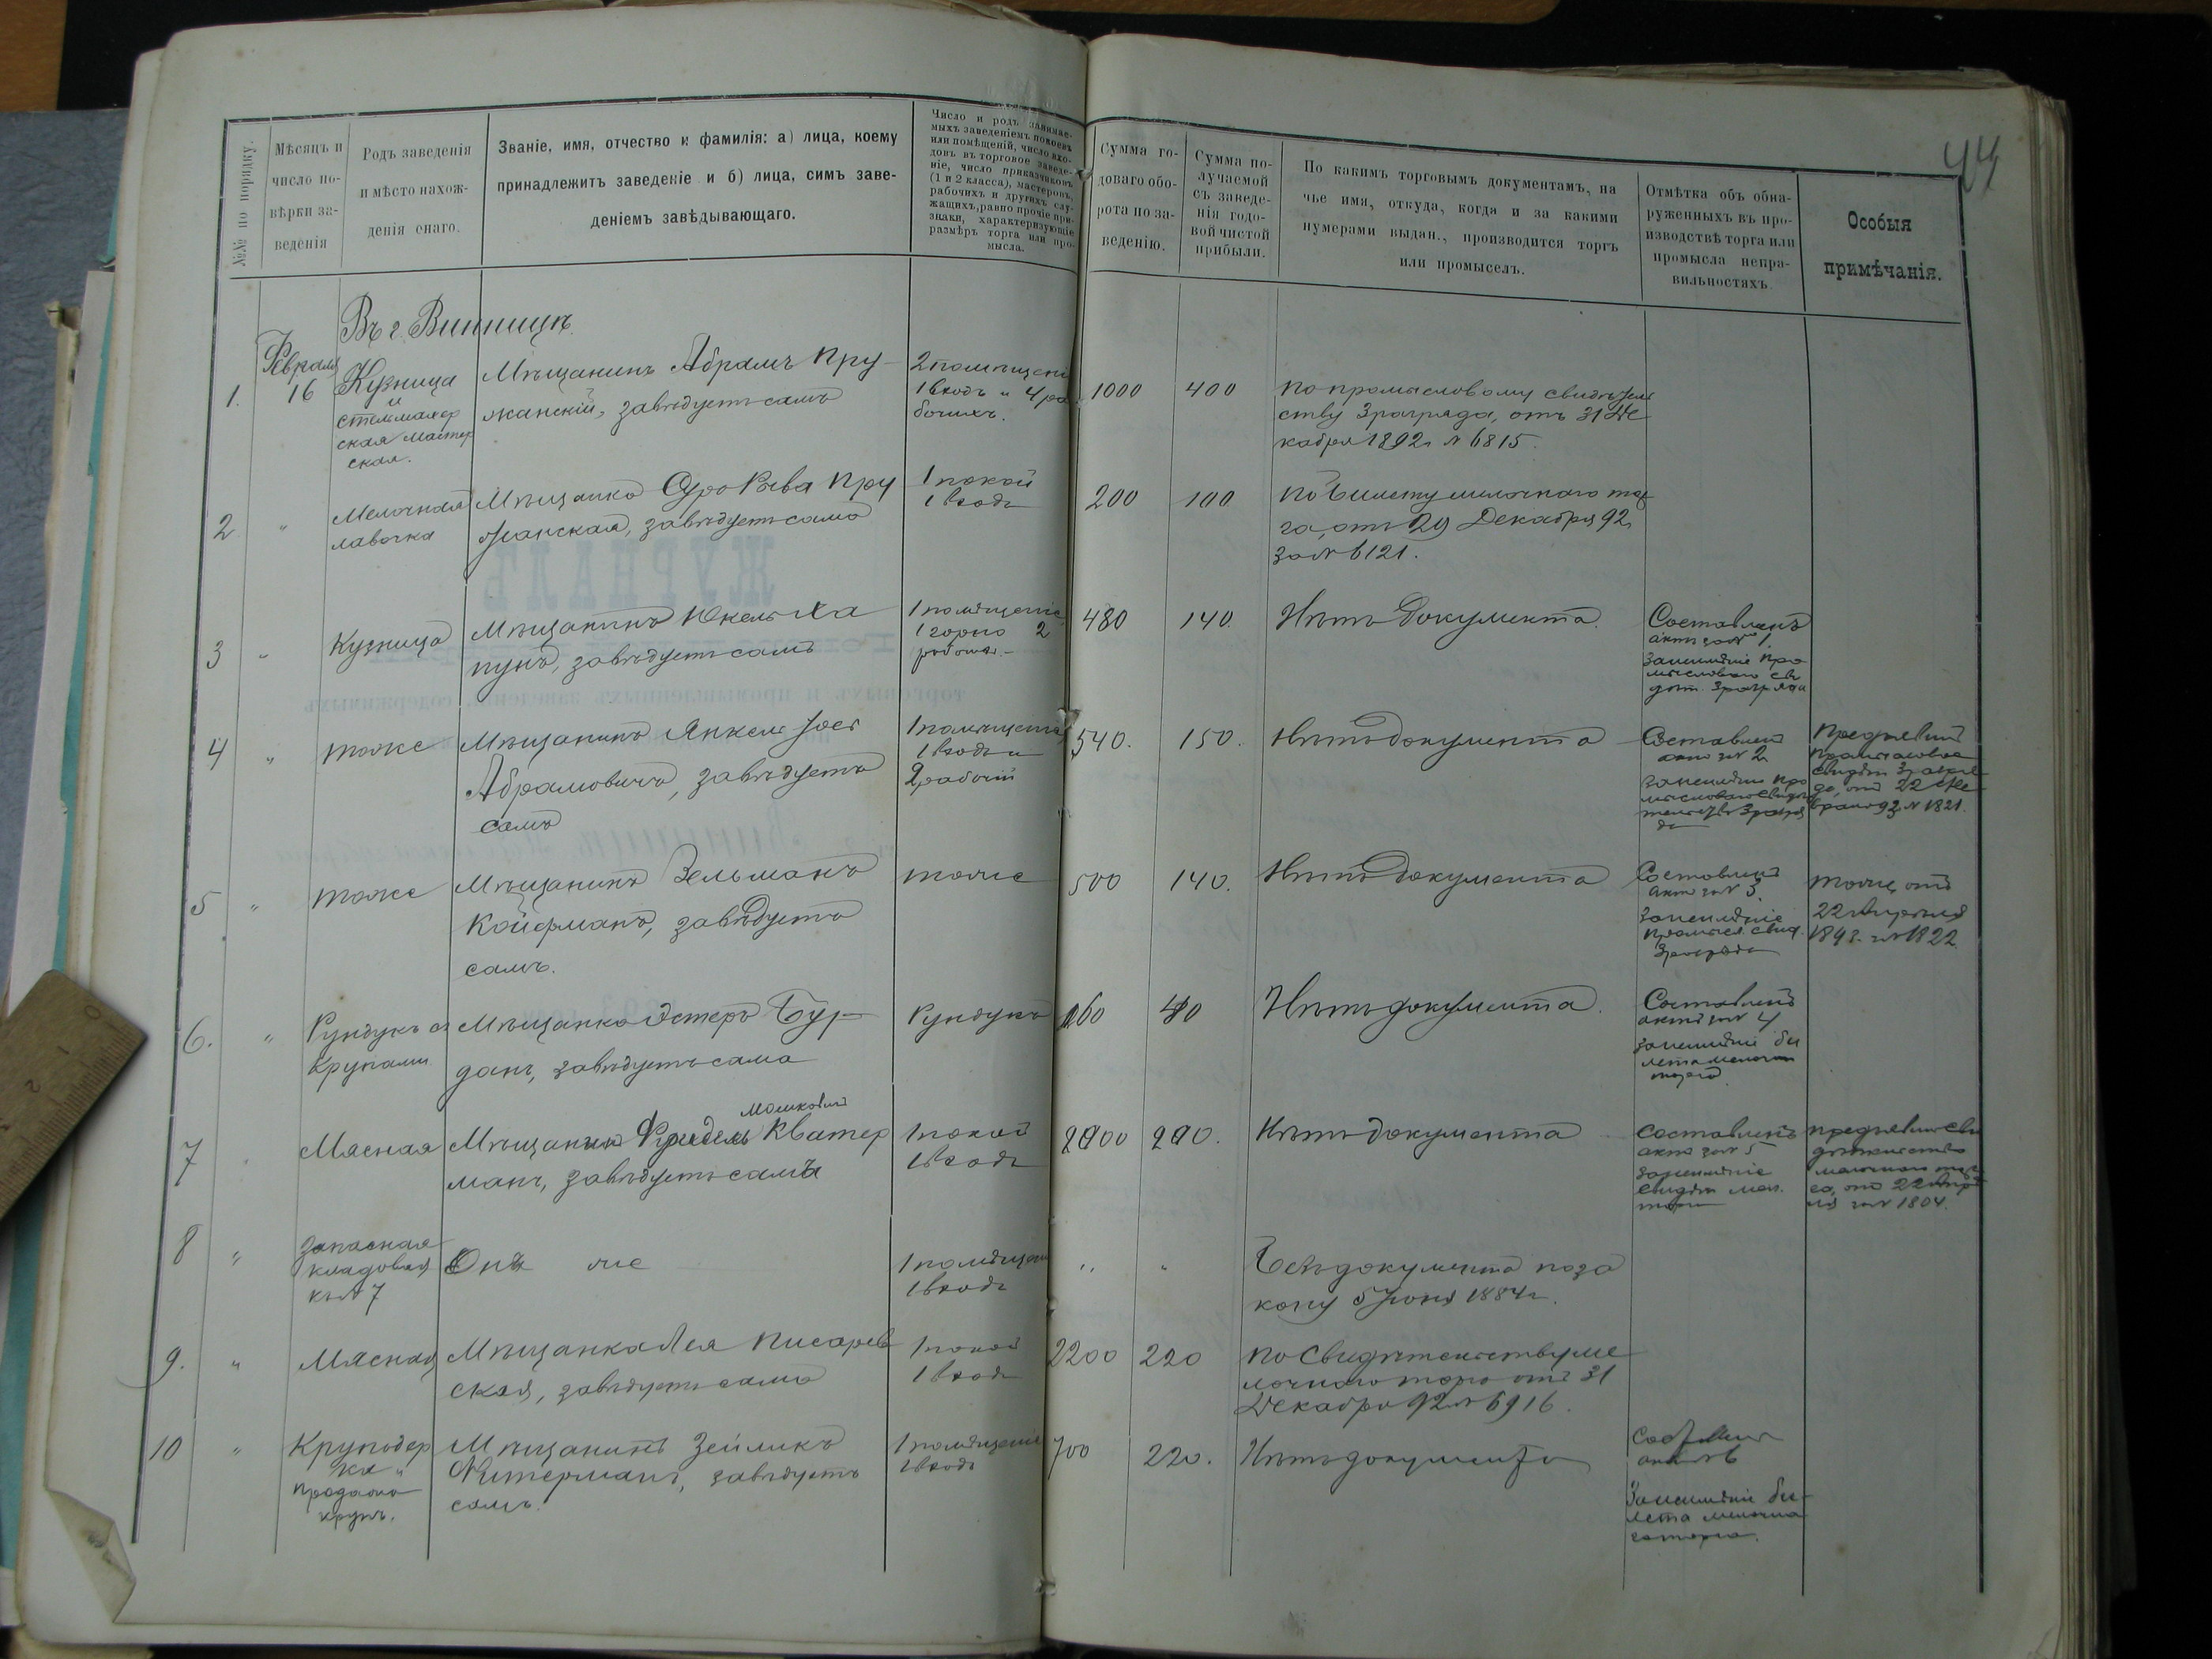 44
№№ по порядку.
Мѣсяцъ и
число по-
вѣрки за-
веденія
Родъ заведенія
и мѣсто нахож-
денія онаго.
Званіе, имя, отчество и фамилія: а) лица, коему
принадлежитъ заведеніе и б) лица, симъ заве-
деніемъ завѣдывающаго.
Число и родъ занимае-
мыхъ заведеніемъ покоевъ
или помѣщеній, число вхо-
довъ въ торговое заведе-
ніе, число приказчиковъ
(1 и 2 класса), мастеровъ,
рабочихъ и другихъ слу-
жащихъ, равно прочіе при-
знаки, характеризующіе
размѣръ торга или про-
мысла.
Сумма го-
доваго обо-
рота по за-
веденію.
Сумма по-
лучаемой
съ заведе-
нія годо-
вой чистой
прибыли.
По какимъ торговымъ документамъ, на
чье имя, откуда, когда и за какими
нумерами выдан., производится торгъ
или промыселъ.
Отмѣтка объ обна-
руженныхъ въ про-
изводствѣ торга или
промысла непра-
вильностяхъ.
Особыя
примѣчанія.
Въ г. Винницѣ
1.
Февраля
16
Кузница
и
стельмахер
ская мастер
ская.
Мѣщанинъ Абрамъ Пру-
жанскій, завѣдуетъ самъ
2 помѣщені
1 входъ и 4 ра
бочихъ.
1000
400
По промысловому свидѣтель
ству 3 разряда, отъ 31 Де
кабря 1892 г № 6815.
2
"
Мелочная
лавочка
Мѣщанка Пру
жанская, завѣдуетъ сама
1 покой
1 входъ
200
100
По билету мелочного тор
га, отъ 29 Декабря 92 г
за № 6121.
3
"
Кузница
Мѣщанинъ Юкель Ха
пунъ, завѣдуетъ самъ
1 помѣщеніе
1 горно 2
работн.
480
140.
Нѣтъ документа.
Составленъ
актъ за № 1.
За неимѣніе про
мысловаго сви
дѣт. 3 разряда
4
"
тоже
Мѣщанинъ Янкель Іось
Абрамовичъ, завѣдуетъ
самъ
1 помѣщеніе
1 входъ и
2 рабочій
540.
150.
Нѣтъ документа
Составленъ
актъ за № 2
За неимѣніе про
мысловаго свидѣ
тельства 3 разря
да
Предъявилъ
промысловое
свидѣт. 3 разря
да, отъ 22 Фе
враля 93 № 1821.
5
"
тоже
Мѣщанинъ Зельманъ
Койфманъ, завѣдуетъ
самъ.
тоже
500
140.
Нѣтъ документа
Составленъ
актъ за № 3.
За неимѣніе
промысл. свид.
3 разряда
тоже, отъ
22 Апрѣля
1893 г. за № 1822.
6.
"
Рундукъ съ
крупами
Мѣщанка Эстеръ Бур-
данъ, завѣдуетъ сама
Рундукъ
160
40
Нѣтъ документа.
Составленъ
актъ за № 4
За неимѣніе би
лета мелочн
торга.
7
Мясная
Мошковичъ
Мѣщанинъ Фридель Кватер
манъ, завѣдуетъ самъ
1 покой
1 входъ
2900
290.
Нѣтъ документа
Составленъ
актъ за № 5
За неимѣніе
свидѣт. мел.
торга
предъявилъ сви
дѣтельство
мелочнаго тор
га, отъ 22 Апрѣ
ля за № 1804.
8
"
Запасная
кладовая
къ № 7
Онъ же
1 помѣщен
1 входъ
"
"
Безъ документа по за
кону 5 Іюня 1884 г.
9.
"
Мясная
Мѣщанка Лея Писарев
ская, завѣдуетъ сама
1 покой
1 входъ
2200
220
По свидѣтельству ме
лочнаго торга отъ 31
Декабря 92 за № 6916.
10
"
Круподер
ка и
продажа
крупъ.
Мѣщанинъ Зейликъ
завѣдуетъ
самъ.
1 помѣщеніе
1 входъ
700
220.
Нѣтъ документа
Составленъ
актъ № 6
За неимѣніе би-
лета мелочна
го торга.